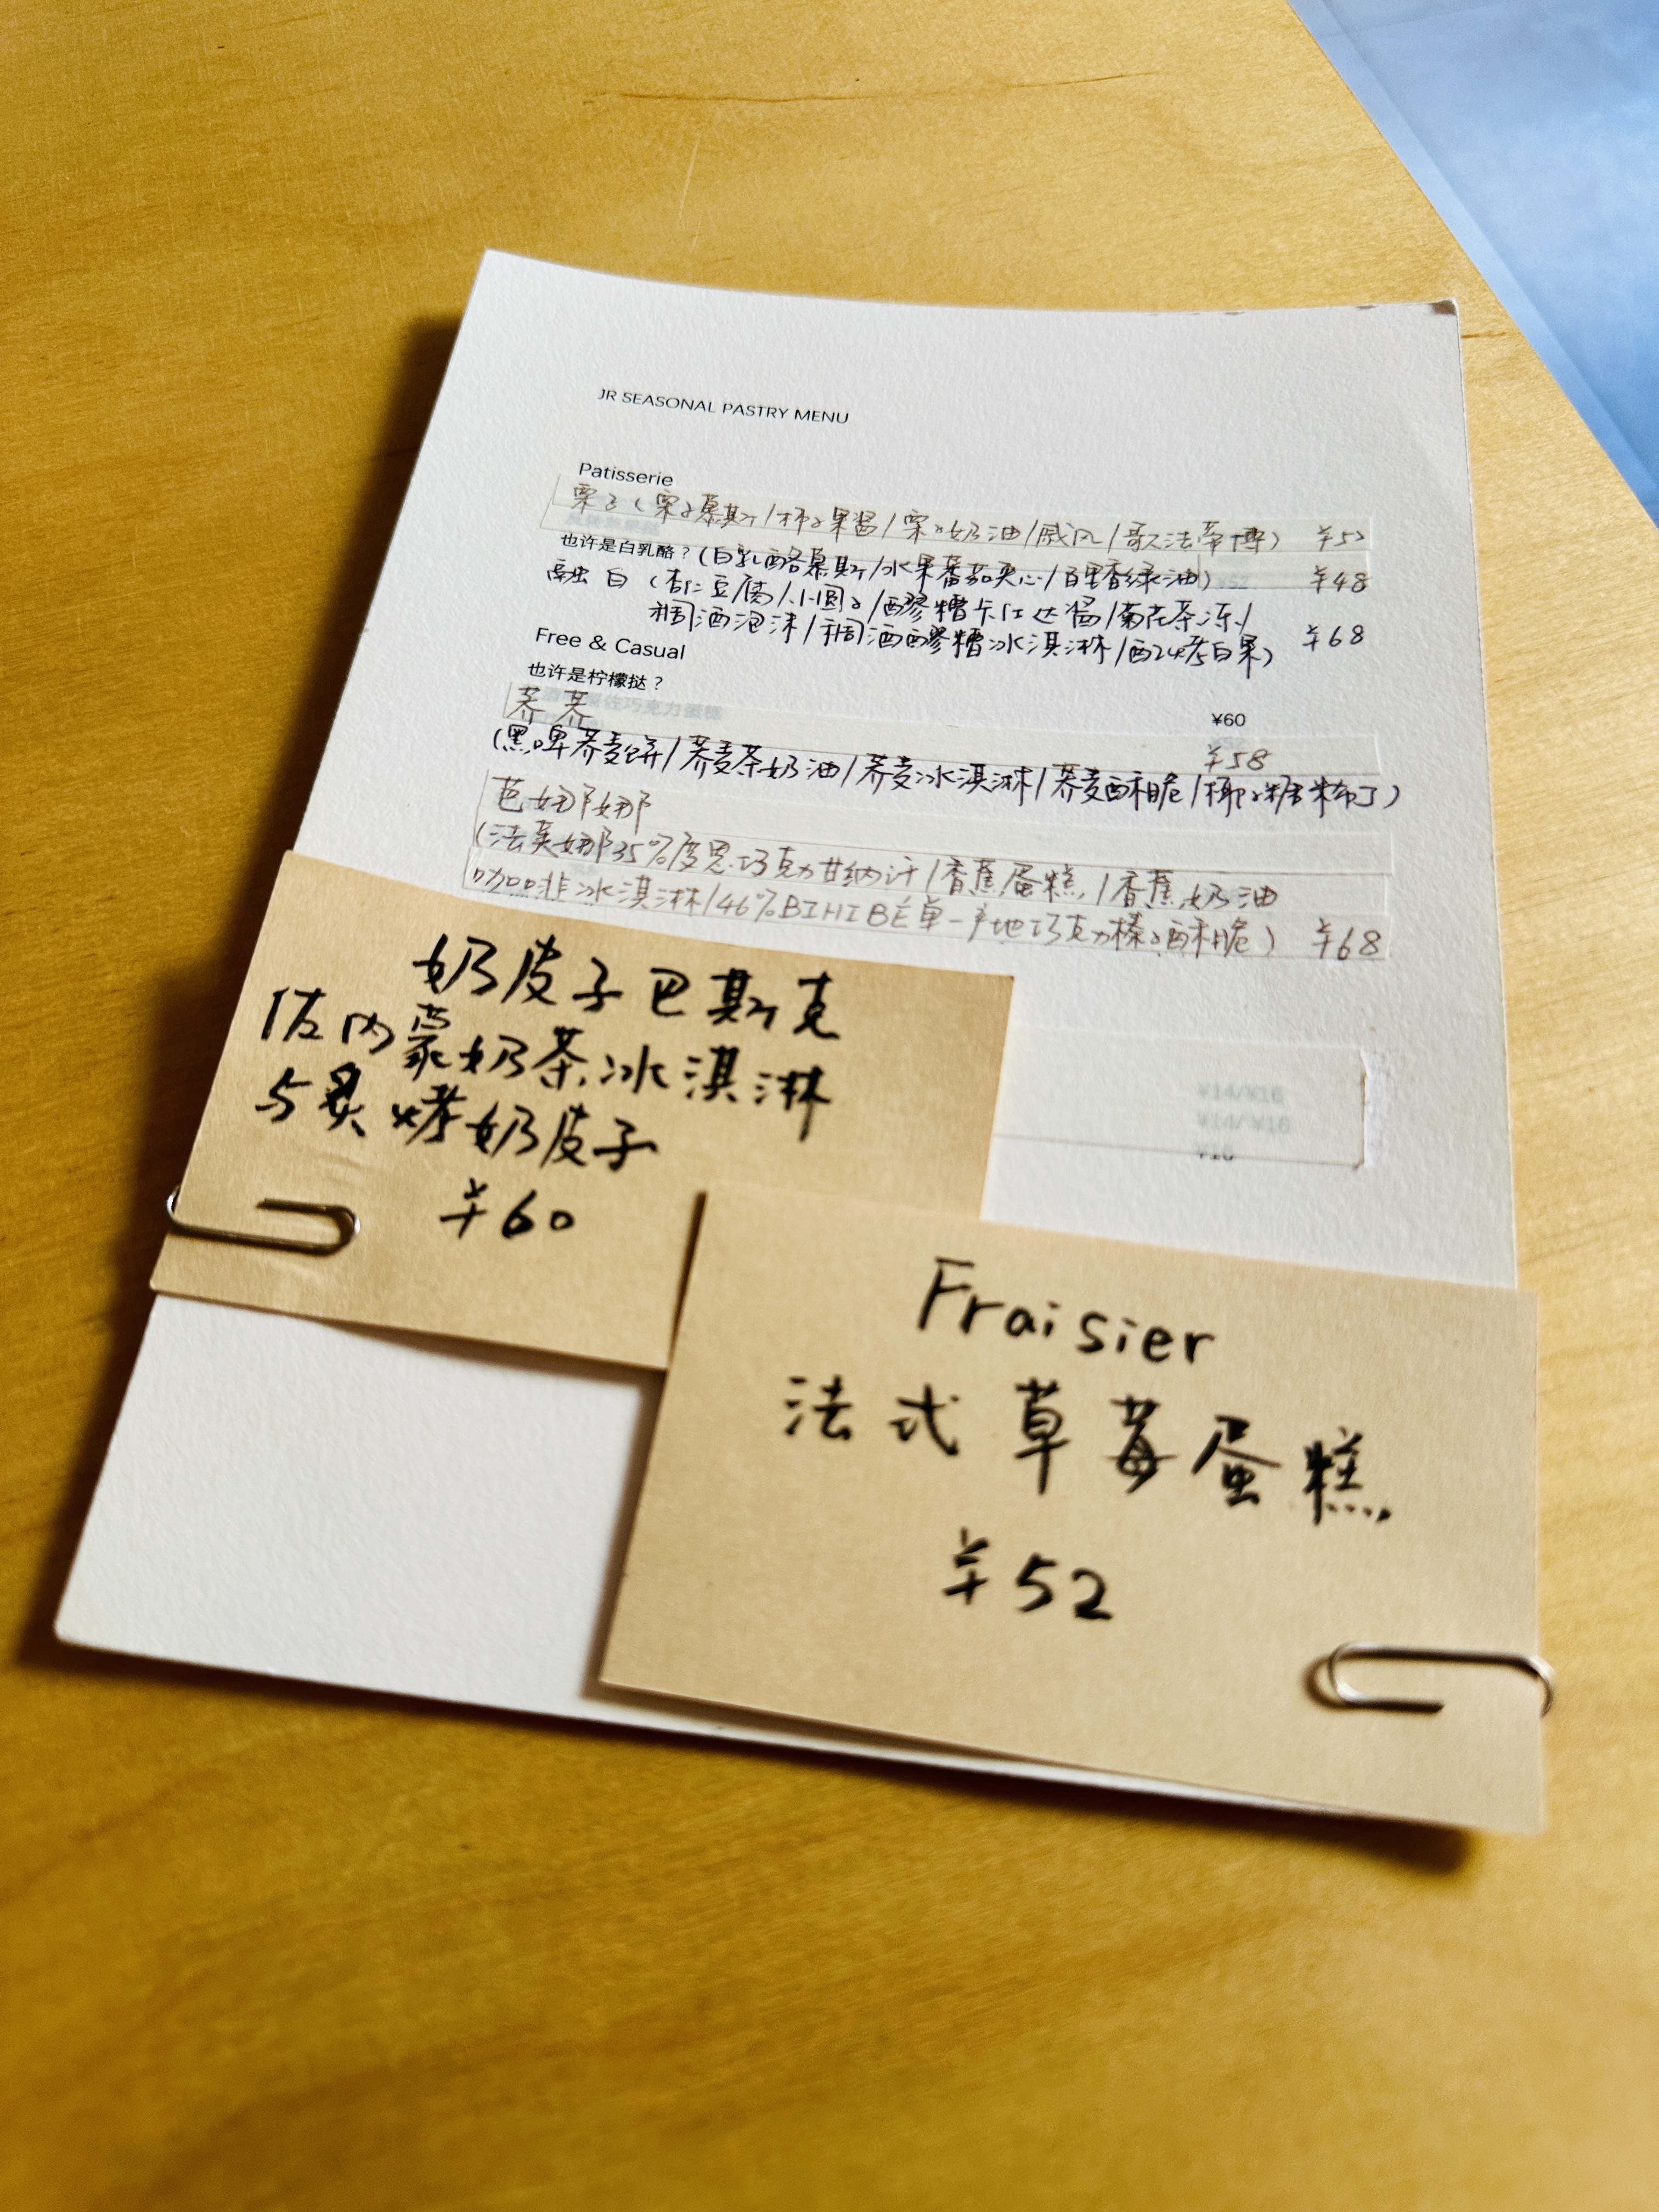 JR SEASONAL PASTRY MENU
Patisserie
栗子(栗子慕斯/柿子果酱/栗子奶油/戚风/歌法蒂博) ¥52
也许是白乳酪?(白乳酪慕斯/水果番茄夹心/百里香绿油) ¥48
融白(杏仁豆腐/小圆子/醪糟卡仕达酱/菊花茶冻/
稠酒泡沫/稠酒醪糟冰淇淋/配24烤白果) ¥68
Free & Casual
也许是柠檬挞? ¥60
荞荞 ¥58
(黑啤荞麦饼/荞麦茶奶油/荞麦冰淇淋/荞麦酥脆/椰子糖布丁)
芭娜娜
(法芙娜35%度思巧克力甘纳许/香蕉蛋糕/香蕉奶油
咖啡冰淇淋/46%BIHIBÉ单一产地巧克力榛子酥脆) ¥68
¥14/¥16
¥14/¥16
奶皮子巴斯克
佐内蒙奶茶冰淇淋
与炙烤奶皮子
¥60
Fraisier
法式草莓蛋糕
¥52